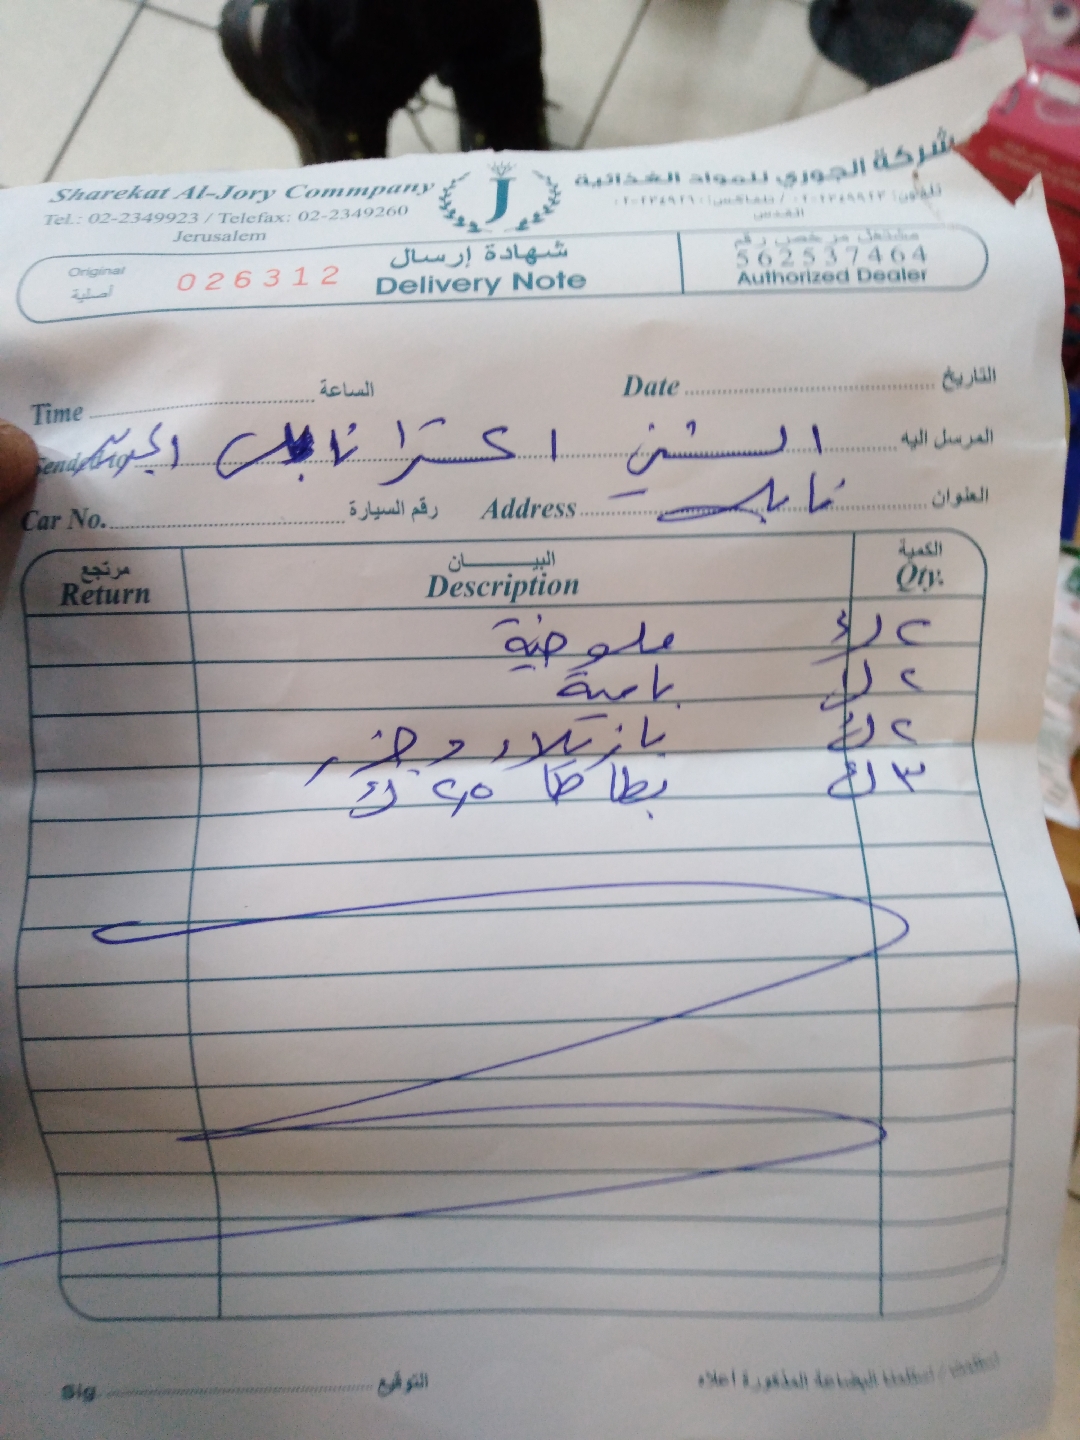 Sharekat Al-Jory Commpany
شركة الجوري للمواد الغذائية
Tel.: 02-2349923 / Telefax: 02-2349260
Jerusalem
القدس
J
Original
أصلية
026312
شهادة إرسال
Delivery Note
مشتغل مرخص رقم
562537464
Authorized Dealer
Time الساعة Date التاريخ
المرسل اليه اكسترا نابلس
Car No. رقم السيارة Address العنوان نابلس
مرتجع البيـــــان الكمية
Return Description Qty.
٢ ك ملوخية
٢ ك بامية
٢ ك بازيلاء وجزر
٣ ك بطاطا ٢,٥ ك
Sig التوقيع
استلمت / استلمنا البضاعة المذكورة اعلاه